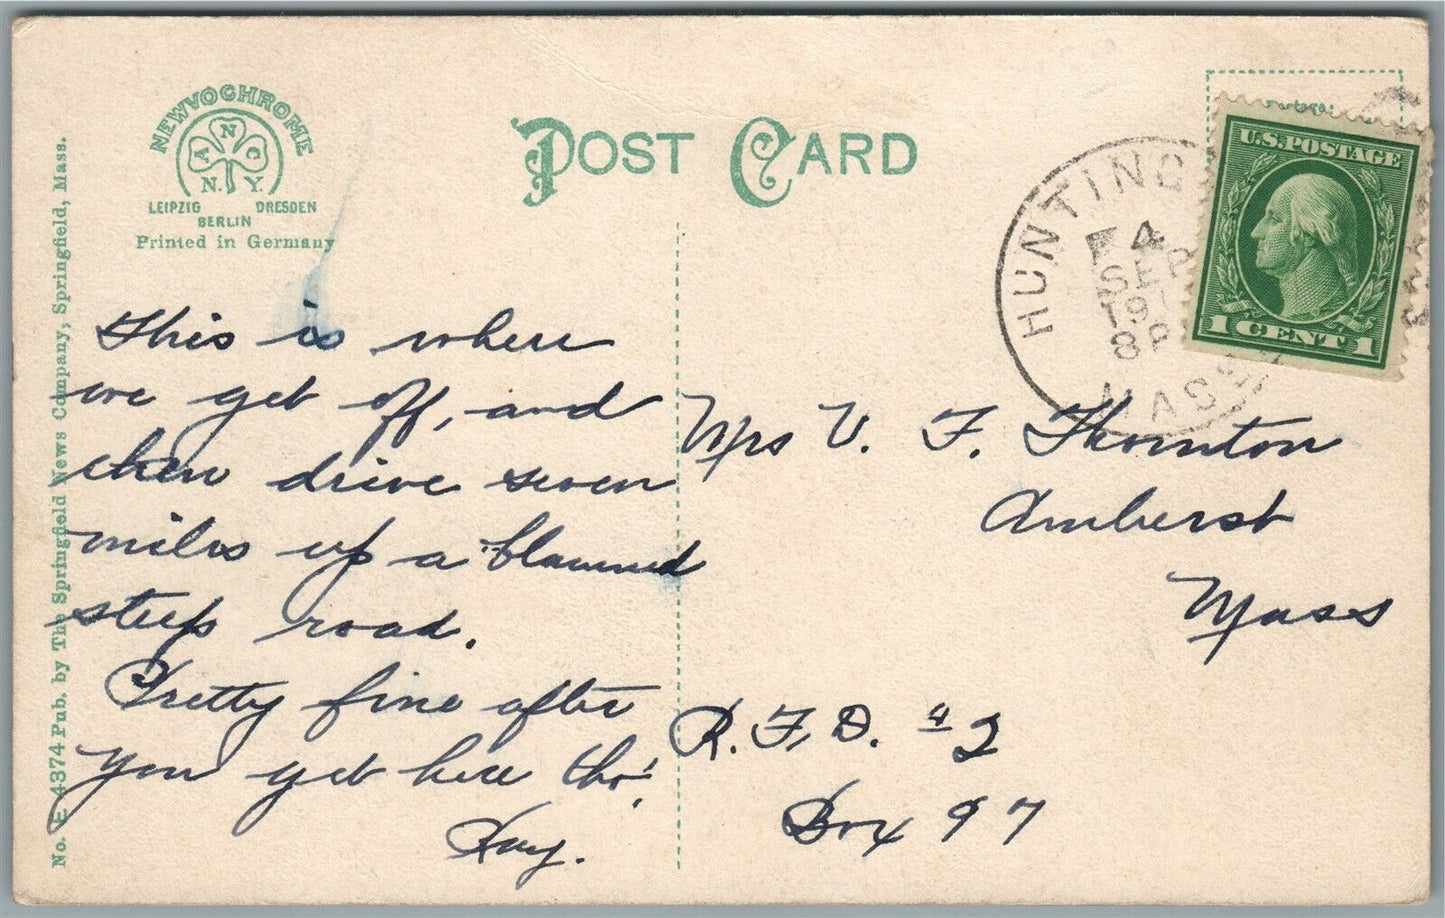 NEWVOCHROME
A N C
N. Y.
LEIPZIG DRESDEN
BERLIN
Printed in Germany
POST CARD
HUNTING
4
SEP
191
8 P
MASS
U.S. POSTAGE
1 CENT 1
No. E 4374 Pub. by The Springfield News Company, Springfield, Mass.
This is where
we get off, and
then drive seven
miles up a "blamed
steep road.
Pretty fine after
you get here tho'.
Mrs V. F. Thornton
Amherst
Mass
R.F.D. #2
Box 97